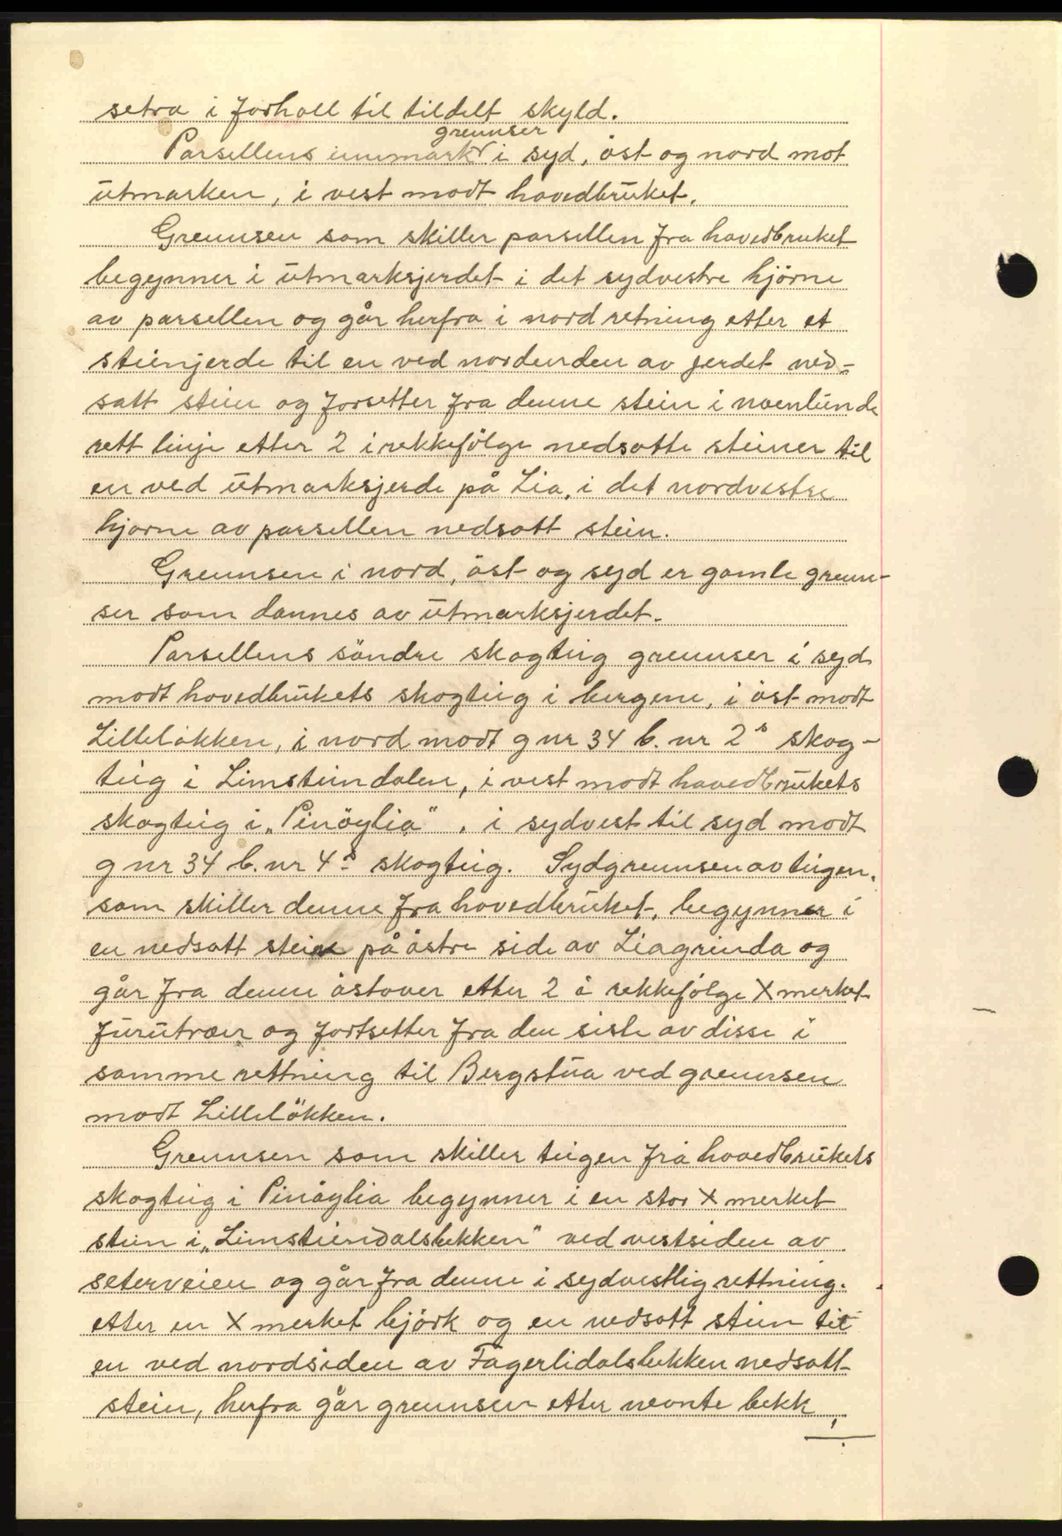 setra i forholl til tildelt skyld.
grennser
Parsellens innmark i syd, öst og nord mot
ütmarken, i vest modt hovedbrüket.
Grennsen som skiller parsellen fra hovedbruket
begynner i ütmarksjerdet i det sydvestre hjörne
av parsellen og går herfra i nord retning etter et
steinjerde til en ved nordenden av jerdet ned-
satt stein og forsetter fra denne stein i noenlunde
rett linje etter 2 i rekkefölge nedsatte steiner til
en ved ütmarksjerde på Lia, i det nordvestre
hjorne av parsellen nedsatt stein.
Grennsen i nord, öst og syd er gamle grenn-
ser som dannes av ütmarksjerdet.
Parsellens söndre skogteig grennser i syd
modt hovedbrükets skogteig i bergene, i öst modt
Lillelökken, i nord modt g nr 34 b. nr 2s skog-
teig i Limsteindalen, i vest modt hovedbrükets
skogteig i „Pinöylia“, i sydvest til syd modt
g nr 34 b. nr 4s skogteig. Sydgrennsen av teigen,
som skiller denne fra hovedbrüket, begynner i
en nedsatt stein på östre side av Liagrinda og
går fra denne östover etter 2 i rekkefölge X merket
fürütrær og fortsetter fra den siste av disse i
samme rettning til Bergstüa ved grennsen
modt Lillelökken.
Grennsen som skiller teigen frå hovedbrükets
skogteig i Pinöylia begynner i en stor X merket
stein i „Limsteindalsbekken“ ved vestsiden av
seterveien og går fra denne i sydvestlig rettning.
etter en X merket björk og en nedsatt stein til
en ved nordsiden av Fagerlidalsbekken nedsatt
stein, herfra går grennsen etter nevnte bekk